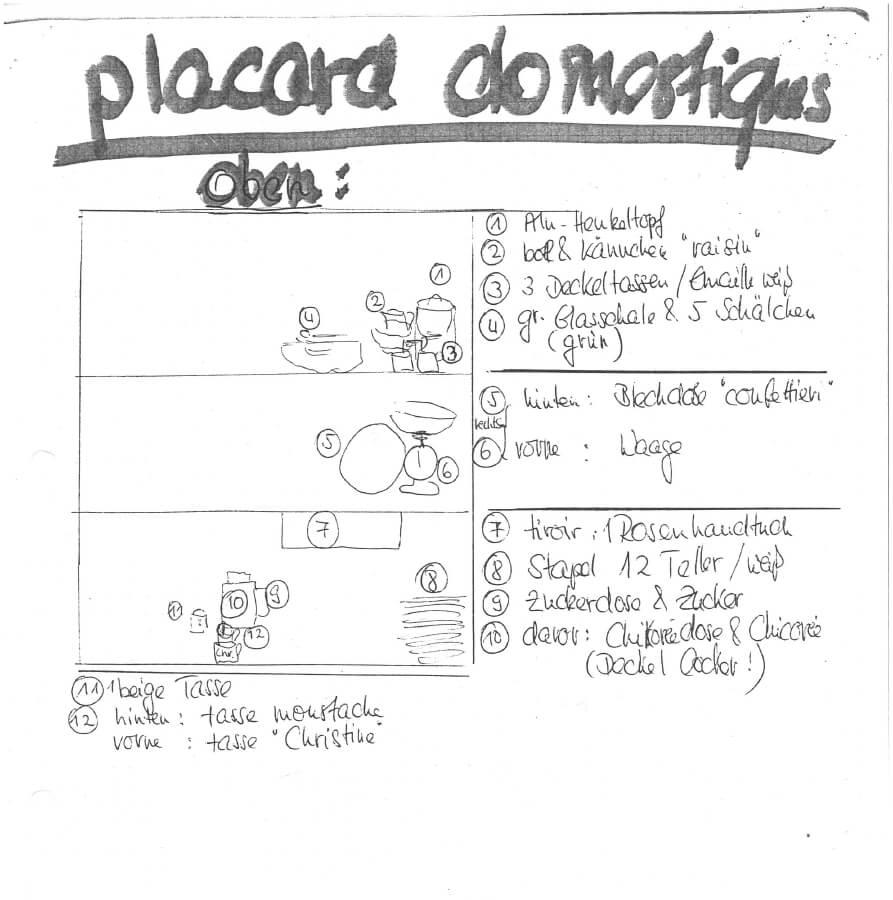 placard domostiques
Oben:
① Alu-Henkeltopf
② bol & Kännchen "raisin"
③ 3 Deckeltassen / Emaille weiß
④ gr. Glasschale & 5 Schälchen
(grün)
① ② ③ ④
⑤ hinten: Blechdose "confettieri"
rechts
⑥ vorne : Waage
⑤ ⑥
⑦ tiroir : 1 Rosenhandtuch
⑧ Stapel 12 Teller / weiß
⑨ Zuckerdose & Zucker
⑩ davor: Chikoréedose & Chicorée
(Deckel locker!)
⑦ ⑧ ⑨ ⑩ 11 ⑫
Chr.
⑪ 1 beige Tasse
⑫ hinten: tasse moustache
vorne : tasse "Christine"